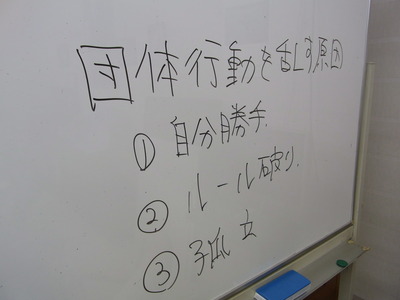 団体行動を乱す原因
① 自分勝手.
② ルール破り.
③ 孤立